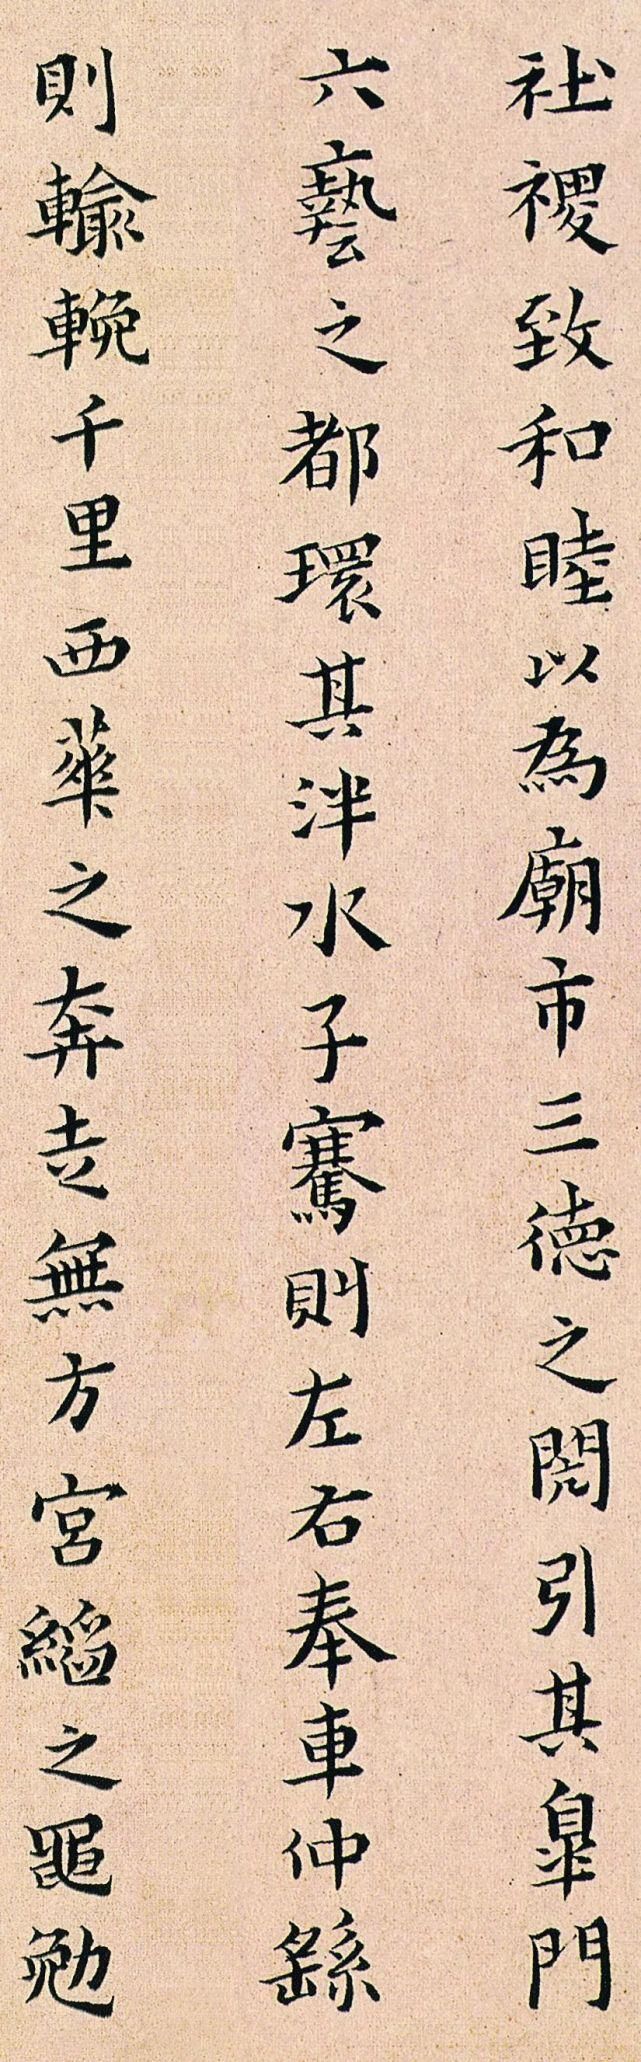 社稷致和睦以為廟市三德之閌引其皐門
六藝之都環其泮水子騫則左右奉車仲繇
則輸輓千里西華之奔走無方宮縚之黽勉